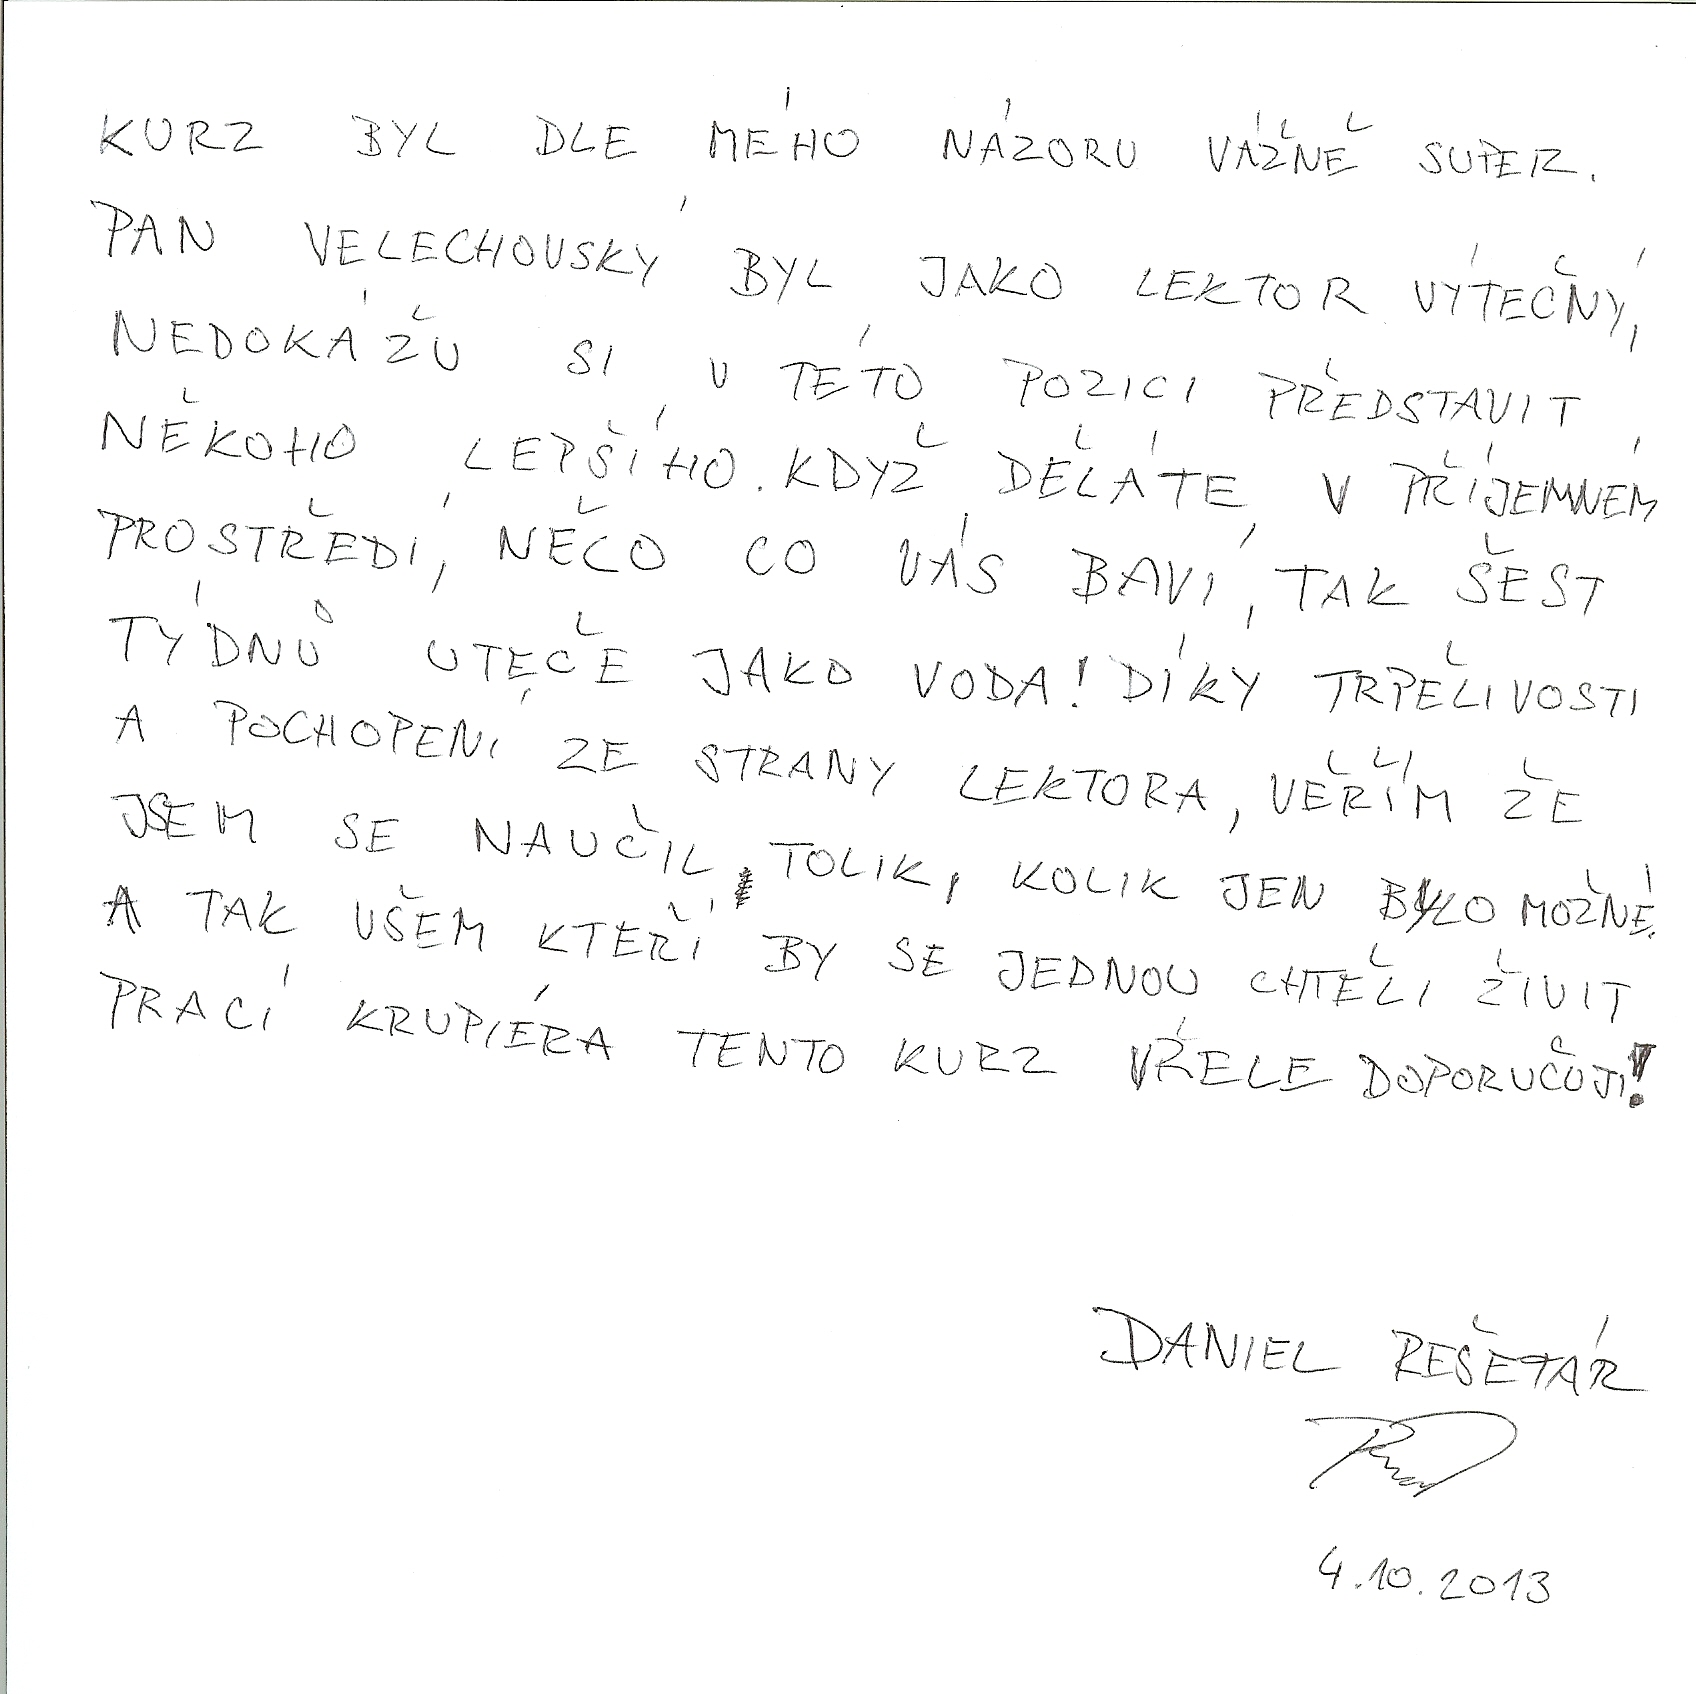 KURZ BYL DLE MÉHO NÁZORU VÁŽNĚ SUPER.
PAN VELECHOVSKÝ BYL JAKO LEKTOR VÝTEČNÝ,
NEDOKÁŽU SI V TÉTO POZICI PŘEDSTAVIT
NĚKOHO LEPŠÍHO. KDYŽ DĚLÁTE, V PŘÍJEMNÉM
PROSTŘEDÍ, NĚČO CO VÁS BAVÍ, TAK ŠEST
TÝDNŮ UTEČE JAKO VODA! DÍKY TRPĚLIVOSTI
A POCHOPENÍ ZE STRANY LEKTORA, VĚŘÍM ŽE
JSEM SE NAUČIL, TOLIK, KOLIK JEN BYLO MOŽNÉ.
A TAK VŠEM KTEŘÍ BY SE JEDNOU CHTĚLI ŽIVIT
PRACÍ KRUPIÉRA TENTO KURZ VŘELE DOPORUČUJI!
DANIEL REŠETÁR
4.10.2013